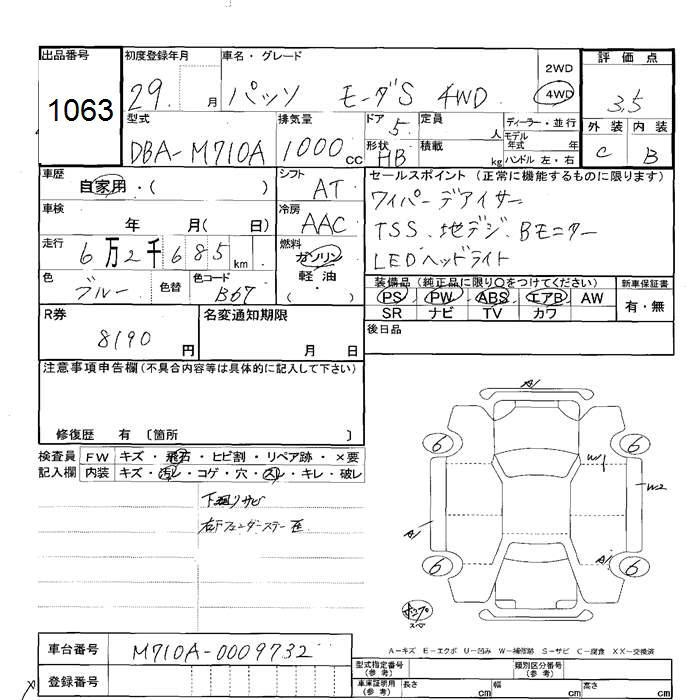 出品番号
1063
初度登録年月
29. 月
車名・グレード
パッソ モーダS 4WD
2WD
4WD
評価点
3.5
外装 内装
C B
型式
DBA-M710A
排気量
1000cc
ドア 5
形状 HB
定員 人
積載 kg
ディーラー・並行
モデル年式 年
ハンドル 左・右
車歴
自家用・( )
車検
年 月( 日)
走行
6万2千685km
色
ブルー
色替
色コード
B67
シフト
AT
冷房
AAC
燃料
ガソリン
軽・油
( )
セールスポイント(正常に機能するものに限ります)
ワイパーデアイサー
TSS、地デジ、Bモニター
LEDヘッドライト
装備品(純正品に限り〇をつけてください)
PS PW ABS エアB AW
SR ナビ TV カワ
新車保証書
有・無
後日品
R券
8190円
名変通知期限
月 日
注意事項申告欄(不具合内容等は具体的に記入して下さい)
修復歴 有 〔箇所 〕
検査員記入欄
FW キズ・飛石・ヒビ割・リペア跡・×要
内装 キズ・汚レ・コゲ・穴・スレ・キレ・破レ
下廻りサビ
右Fフェンダーステー歪
A1
6 6
W1
W2
A1
A1
6 6
テンプ
スペア
A-キズ E-エクボ U-凹み W-補修跡 S-サビ C-腐食 XX-交換済
車台番号
M710A-0009732
登録番号
型式指定番号(参考)
類別区分番号(参考)
車庫証明用(参考)
長さ cm
幅 cm
高さ cm